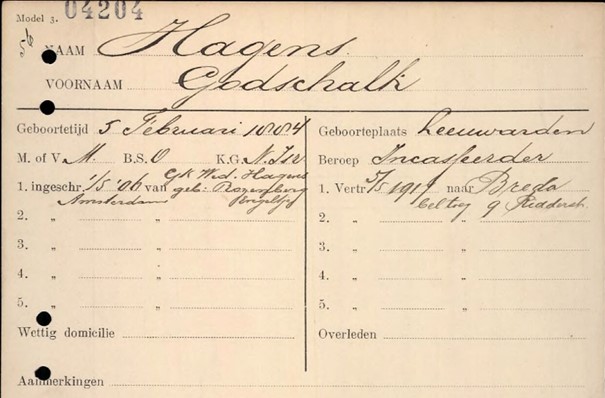 Model 3. 04204
NAAM Hagens
VOORNAAM Godschalk
Geboortetijd 5 Februari 1884
M. of V. M. B.S. O K.G. N. Isr
1. ingeschr. 1/5 '06 van Wed. Hagens
Amsterdam geb: Rozenberg
2. " "
3. " "
4. " "
5. " "
Wettig domicilie
Aanmerkingen
Geboorteplaats Leeuwarden
Beroep Incasseerder
1. Vertr. 5/5 1919 naar Breda
2. " " 9 Ridderstr
3. " "
4. " "
5. " "
Overleden